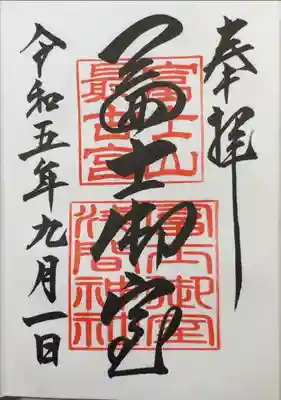 奉拝
冨士御室
富士山
最古宮
冨士御室
浅間神社
令和五年九月一日